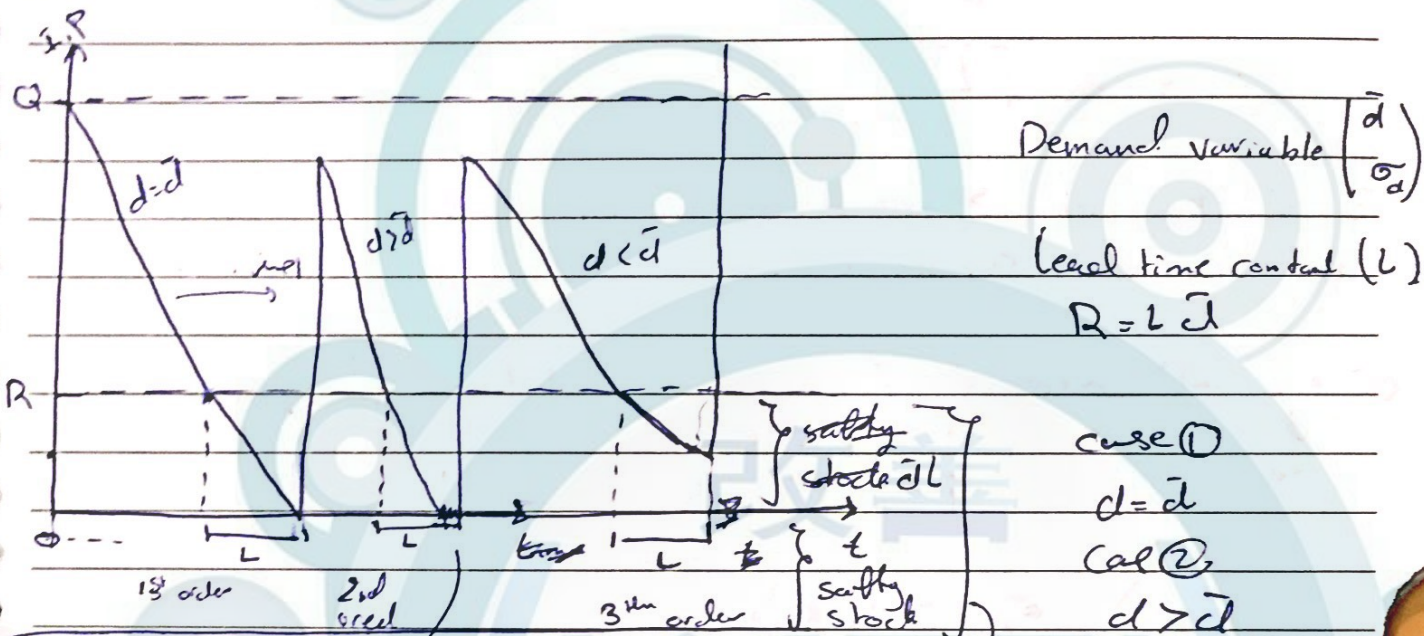 Q
d=d̄
d>d̄
d<d̄
R
L
L
L
1st order
2nd
3rd order
t
safty
stock
d̄L
safty
stock
Demand variable (d̄
σd)
Lead time constant (L)
R = L d̄
case ①
d = d̄
Case ②
d > d̄
改善